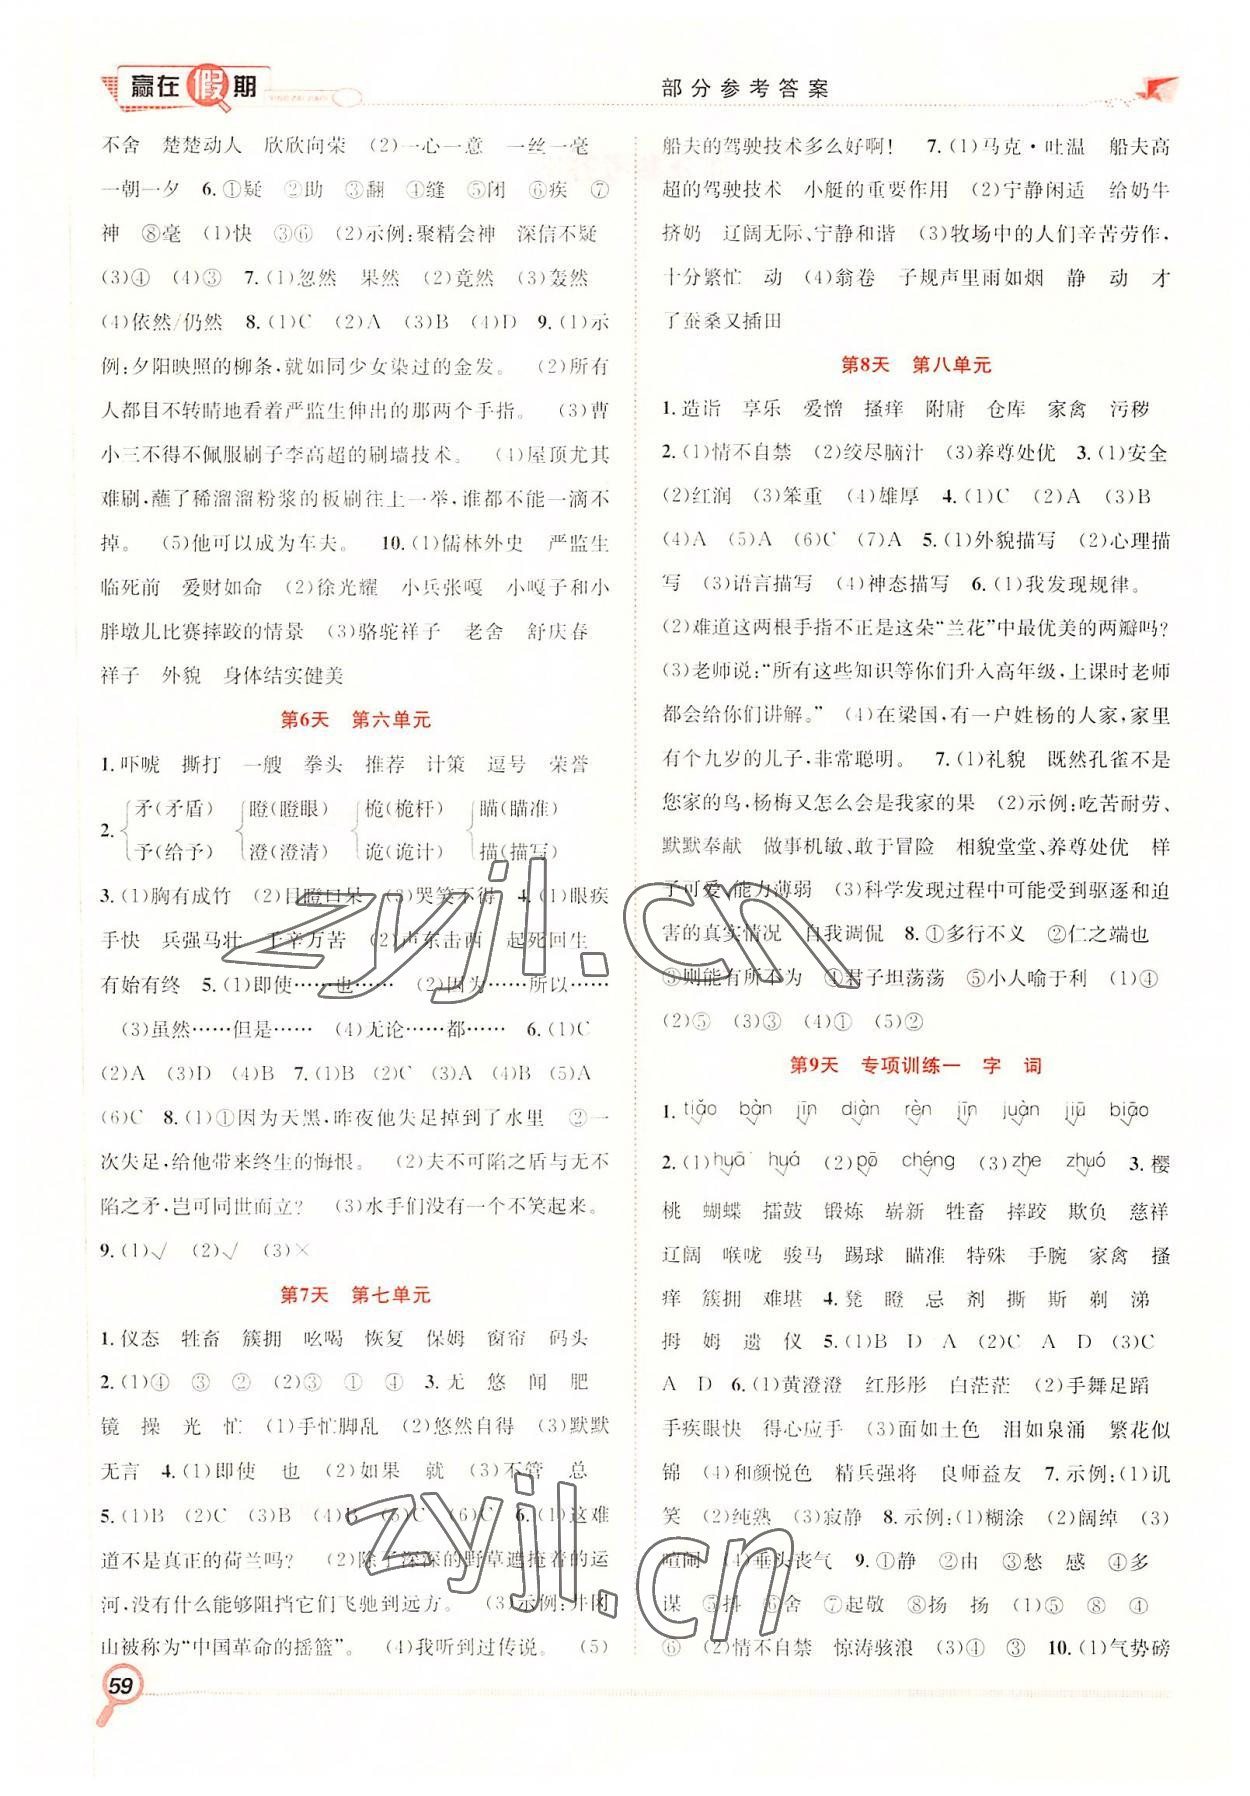 赢在假期
部分参考答案
不舍 楚楚动人 欣欣向荣 (2)一心一意 一丝一毫
一朝一夕 6.①疑 ②助 ③翻 ④缝 ⑤闭 ⑥疾 ⑦
神 ⑧毫 (1)快 ③⑥ (2)示例:聚精会神 深信不疑
(3)④ (4)③ 7.(1)忽然 果然 (2)竟然 (3)轰然
(4)依然/仍然 8.(1)C (2)A (3)B (4)D 9.(1)示
例:夕阳映照的柳条,就如同少女染过的金发。 (2)所有
人都目不转睛地看着严监生伸出的那两个手指。 (3)曹
小三不得不佩服刷子李高超的刷墙技术。 (4)屋顶尤其
难刷,蘸了稀溜溜粉浆的板刷往上一举,谁都不能一滴不
掉。 (5)他可以成为车夫。 10.(1)儒林外史 严监生
临死前 爱财如命 (2)徐光耀 小兵张嘎 小嘎子和小
胖墩儿比赛摔跤的情景 (3)骆驼祥子 老舍 舒庆春
祥子 外貌 身体结实健美
第6天 第六单元
1.吓唬 撕打 一艘 拳头 推荐 计策 逗号 荣誉
2.{矛(矛盾) {瞪(瞪眼) {桅(桅杆) {瞄(瞄准)
予(给予) 澄(澄清) 诡(诡计) 描(描写)
3.(1)胸有成竹 (2)目瞪口呆 (3)哭笑不得 4.(1)眼疾
手快 兵强马壮 千辛万苦 (2)声东击西 起死回生
有始有终 5.(1)即使……也…… (2)因为……所以……
(3)虽然……但是…… (4)无论……都…… 6.(1)C
(2)A (3)B (4)A 7.(1)B (2)C (3)A (4)B (5)A
(6)C 8.(1)①因为天黑,昨夜他失足掉到了水里 ②一
次失足,给他带来终生的悔恨。 (2)夫不可陷之盾与无不
陷之矛,岂可同世而立? (3)水手们没有一个不笑起来。
9.(1)√ (2)√ (3)×
第7天 第七单元
1.仪态 牲畜 簇拥 吆喝 恢复 保姆 窗帘 码头
2.(1)④ ③ ② (2)③ ① ④ 3.无 悠 闻 肥
镜 操 光 忙 (1)手忙脚乱 (2)悠然自得 (3)默默
无言 4.(1)即使 也 (2)如果 就 (3)不管 总
5.(1)B (2)C (3)C (4)B (5)C (6)C 6.(1)这难
道不是真正的荷兰吗? (2)除了深深的野草遮掩着的运
河,没有什么能够阻挡它们飞驰到远方。 (3)示例:井冈
山被称为“中国革命的摇篮”。 (4)我听到过传说。 (5)
船夫的驾驶技术多么好啊! 7.(1)马克·吐温 船夫高
超的驾驶技术 小艇的重要作用 (2)宁静闲适 给奶牛
挤奶 辽阔无际、宁静和谐 (3)牧场中的人们辛苦劳作,
十分繁忙 动 (4)翁卷 子规声里雨如烟 静 动 才
了蚕桑又插田
第8天 第八单元
1.造诣 享乐 爱憎 搔痒 附庸 仓库 家禽 污秽
2.(1)情不自禁 (2)绞尽脑汁 (3)养尊处优 3.(1)安全
(2)红润 (3)笨重 (4)雄厚 4.(1)C (2)A (3)B
(4)A (5)A (6)C (7)A 5.(1)外貌描写 (2)心理描
写 (3)语言描写 (4)神态描写 6.(1)我发现规律。
(2)难道这两根手指不正是这朵“兰花”中最优美的两瓣吗?
(3)老师说:“所有这些知识等你们升入高年级,上课时老师
都会给你们讲解。” (4)在梁国,有一户姓杨的人家,家里
有个九岁的儿子,非常聪明。 7.(1)礼貌 既然孔雀不是
您家的鸟,杨梅又怎么会是我家的果 (2)示例:吃苦耐劳、
默默奉献 做事机敏、敢于冒险 相貌堂堂、养尊处优 样
子可爱、能力薄弱 (3)科学发现过程中可能受到驱逐和迫
害的真实情况 自我调侃 8.①多行不义 ②仁之端也
③则能有所不为 ④君子坦荡荡 ⑤小人喻于利 (1)④
(2)⑤ (3)③ (4)① (5)②
第9天 专项训练一 字 词
1.tiǎo bàn jīn diàn rèn jīn juàn jiū biāo
2.(1)huā huá (2)pō chéng (3)zhe zhuó 3.樱
桃 蝴蝶 擂鼓 锻炼 崭新 牲畜 摔跤 欺负 慈祥
辽阔 喉咙 骏马 踢球 瞄准 特殊 手腕 家禽 搔
痒 簇拥 难堪 4.凳 瞪 忌 剂 撕 斯 剃 涕
拇 姆 遗 仪 5.(1)B D A (2)C A D (3)C
A D 6.(1)黄澄澄 红彤彤 白茫茫 (2)手舞足蹈
手疾眼快 得心应手 (3)面如土色 泪如泉涌 繁花似
锦 (4)和颜悦色 精兵强将 良师益友 7.示例:(1)讥
笑 (2)纯熟 (3)寂静 8.示例:(1)糊涂 (2)阔绰 (3)
喧闹 (4)垂头丧气 9.①静 ②由 ③愁 感 ④多
谋 ⑤抖 ⑥舍 ⑦起敬 ⑧扬 扬 (1)⑤ ⑧ ④
⑥ (2)情不自禁 惊涛骇浪 (3)④ ③ 10.(1)气势磅
59
zyjl.cn
zyjl.cn